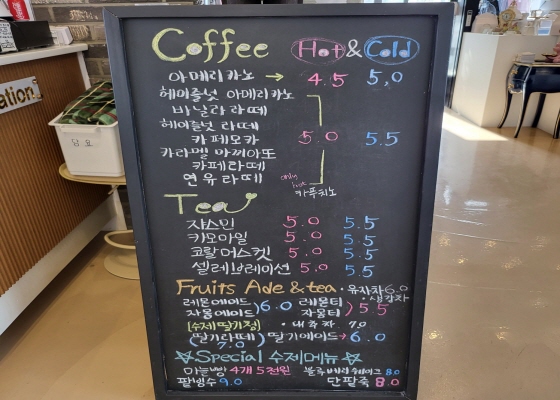 Coffee Hot & Cold
아메리카노 → 4.5 5,0
헤이즐넛 아메리카노
바닐라 라떼
헤이즐넛 라떼
카페모카 5.0 5.5
카라멜 마끼아또
카페라떼
연유라떼 only hot 카푸치노
Tea
쟈스민 5.0 5.5
캐모마일 5.0 5.5
코랄 머스켓 5.0 5.5
셀레브레이션 5.0 5.5
Fruits Ade & tea · 유자차 6.0
· 생강차
레몬에이드 자몽에이드 6.0 레몬티 자몽티 5.5
[수제딸기청] · 대추차 7.0
(딸기라떼) 딸기에이드 → 6.0
☆Special 수제메뉴☆
마늘빵 4개 5천원 블루베리쉐이크 8.0
팥빙수 9.0 단팥죽 8.0
담요
ation